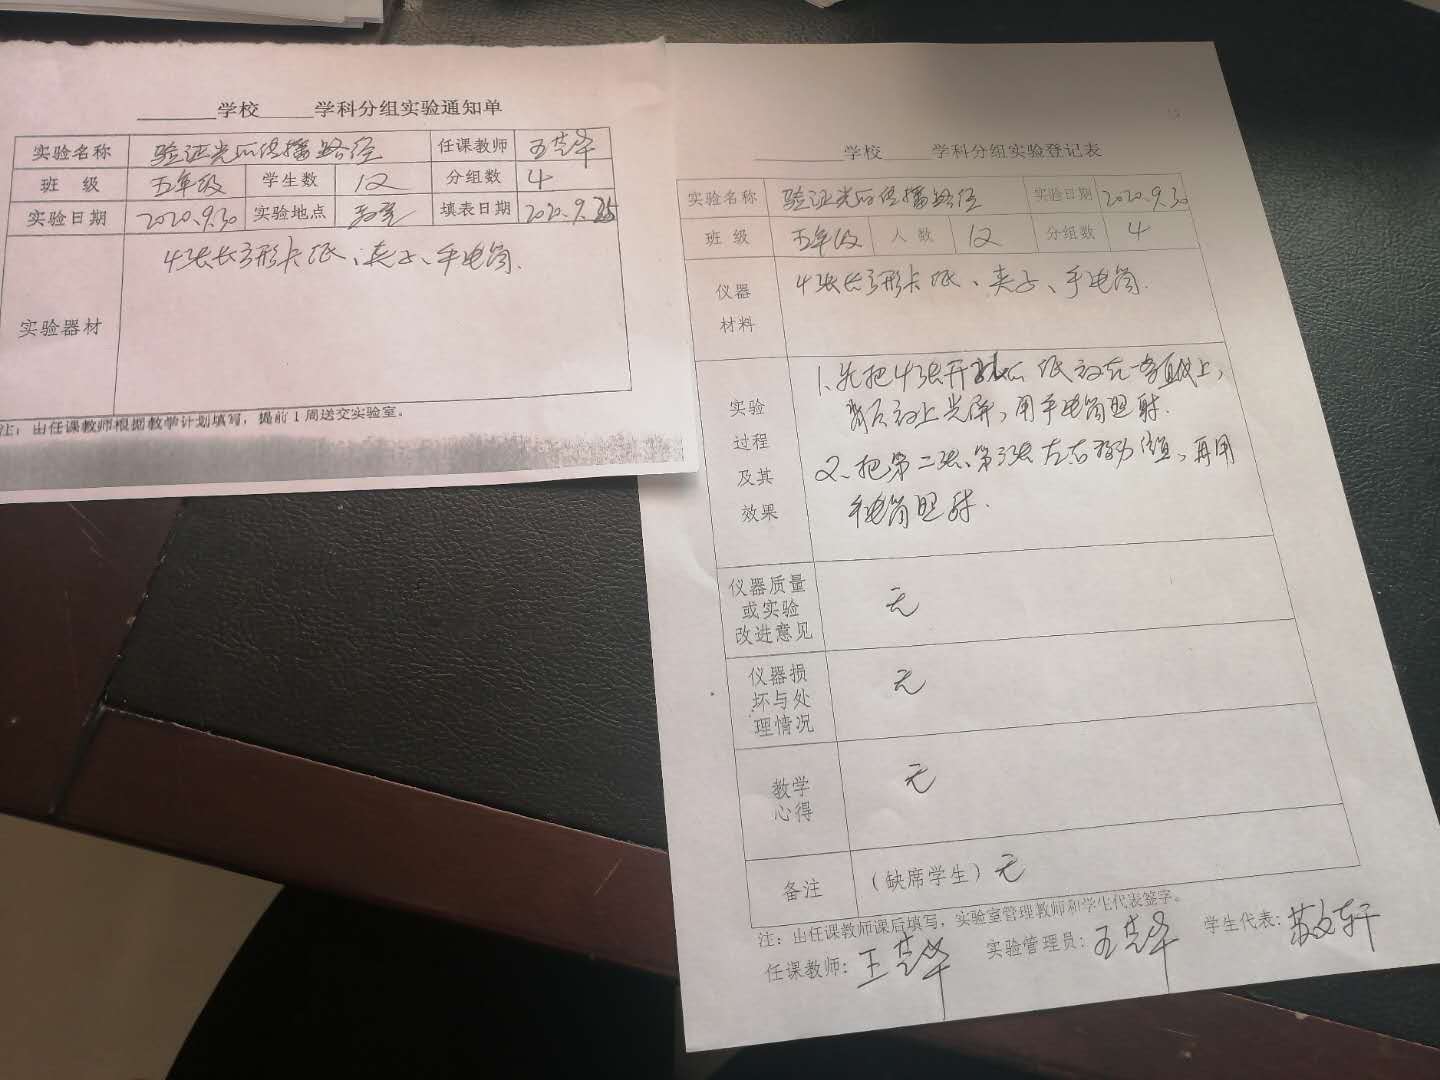 学校 学科分组实验通知单
实验名称 验证光的传播路径 任课教师
班 级 五年级 学生数 12 分组数 4
实验日期 2020.9.30 实验地点 教室 填表日期 2020.9.25
实验器材 4张长方形卡纸、夹子、手电筒.
注：由任课教师根据教学计划填写，提前1周送交实验室。
学校 学科分组实验登记表
实验名称 验证光的传播路径 实验日期 2020.9.30
班 级 五年级 人 数 12 分组数 4
仪器
材料
4张长方形卡纸、夹子、手电筒.
实验
过程
及其
效果
1、先把4张开孔的纸放在一条直线上，
背后放上光屏，用手电筒照射.
2、把第二张、第3张左右移动位置，再用
手电筒照射.
仪器质量
或实验
改进意见
无
仪器损
坏与处
理情况
无
教学
心得
无
备注 （缺席学生）无
注：由任课教师课后填写，实验室管理教师和学生代表签字。
任课教师： 实验管理员： 学生代表：